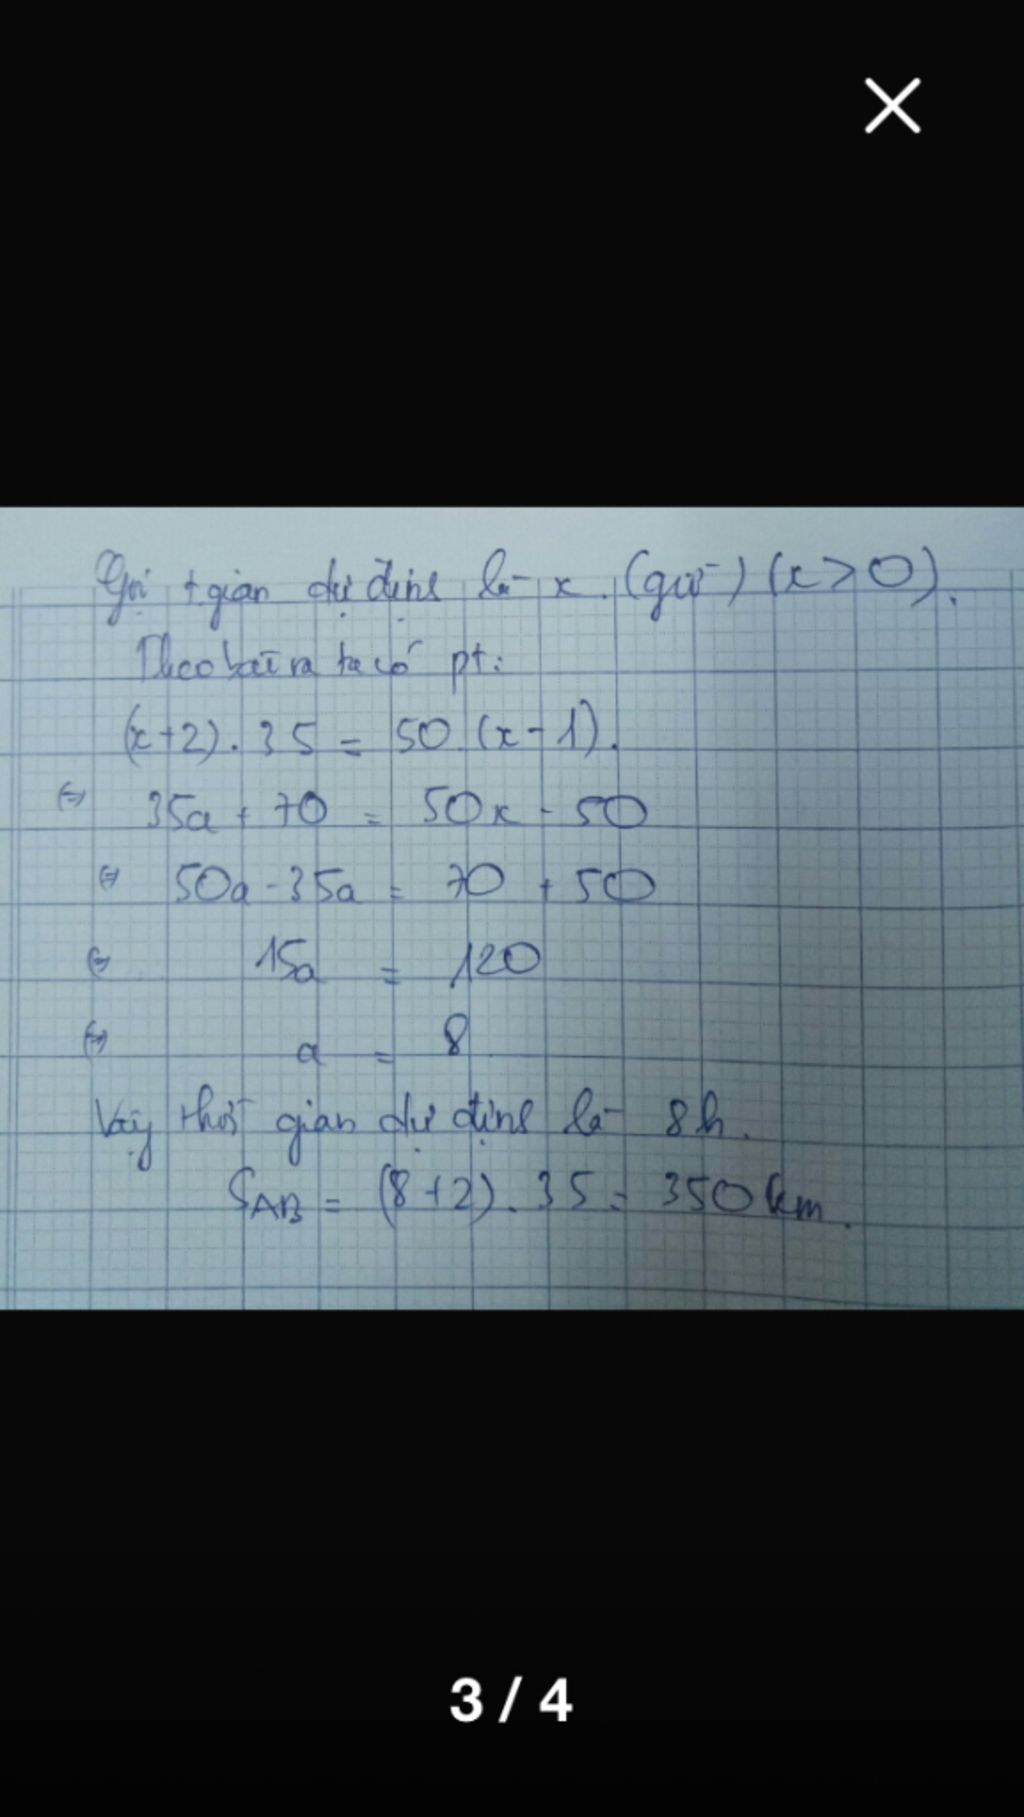 Gọi tgian dự định là x. (giờ) (x>0).
Theo bài ra ta có pt:
(x+2).35 = 50.(x-1).
⇔ 35a + 70 = 50x - 50
⇔ 50a - 35a = 70 + 50
⇔ 15a = 120
⇔ a = 8
Vậy thời gian dự định là 8h.
SAB = (8+2).35 = 350km.
3 / 4